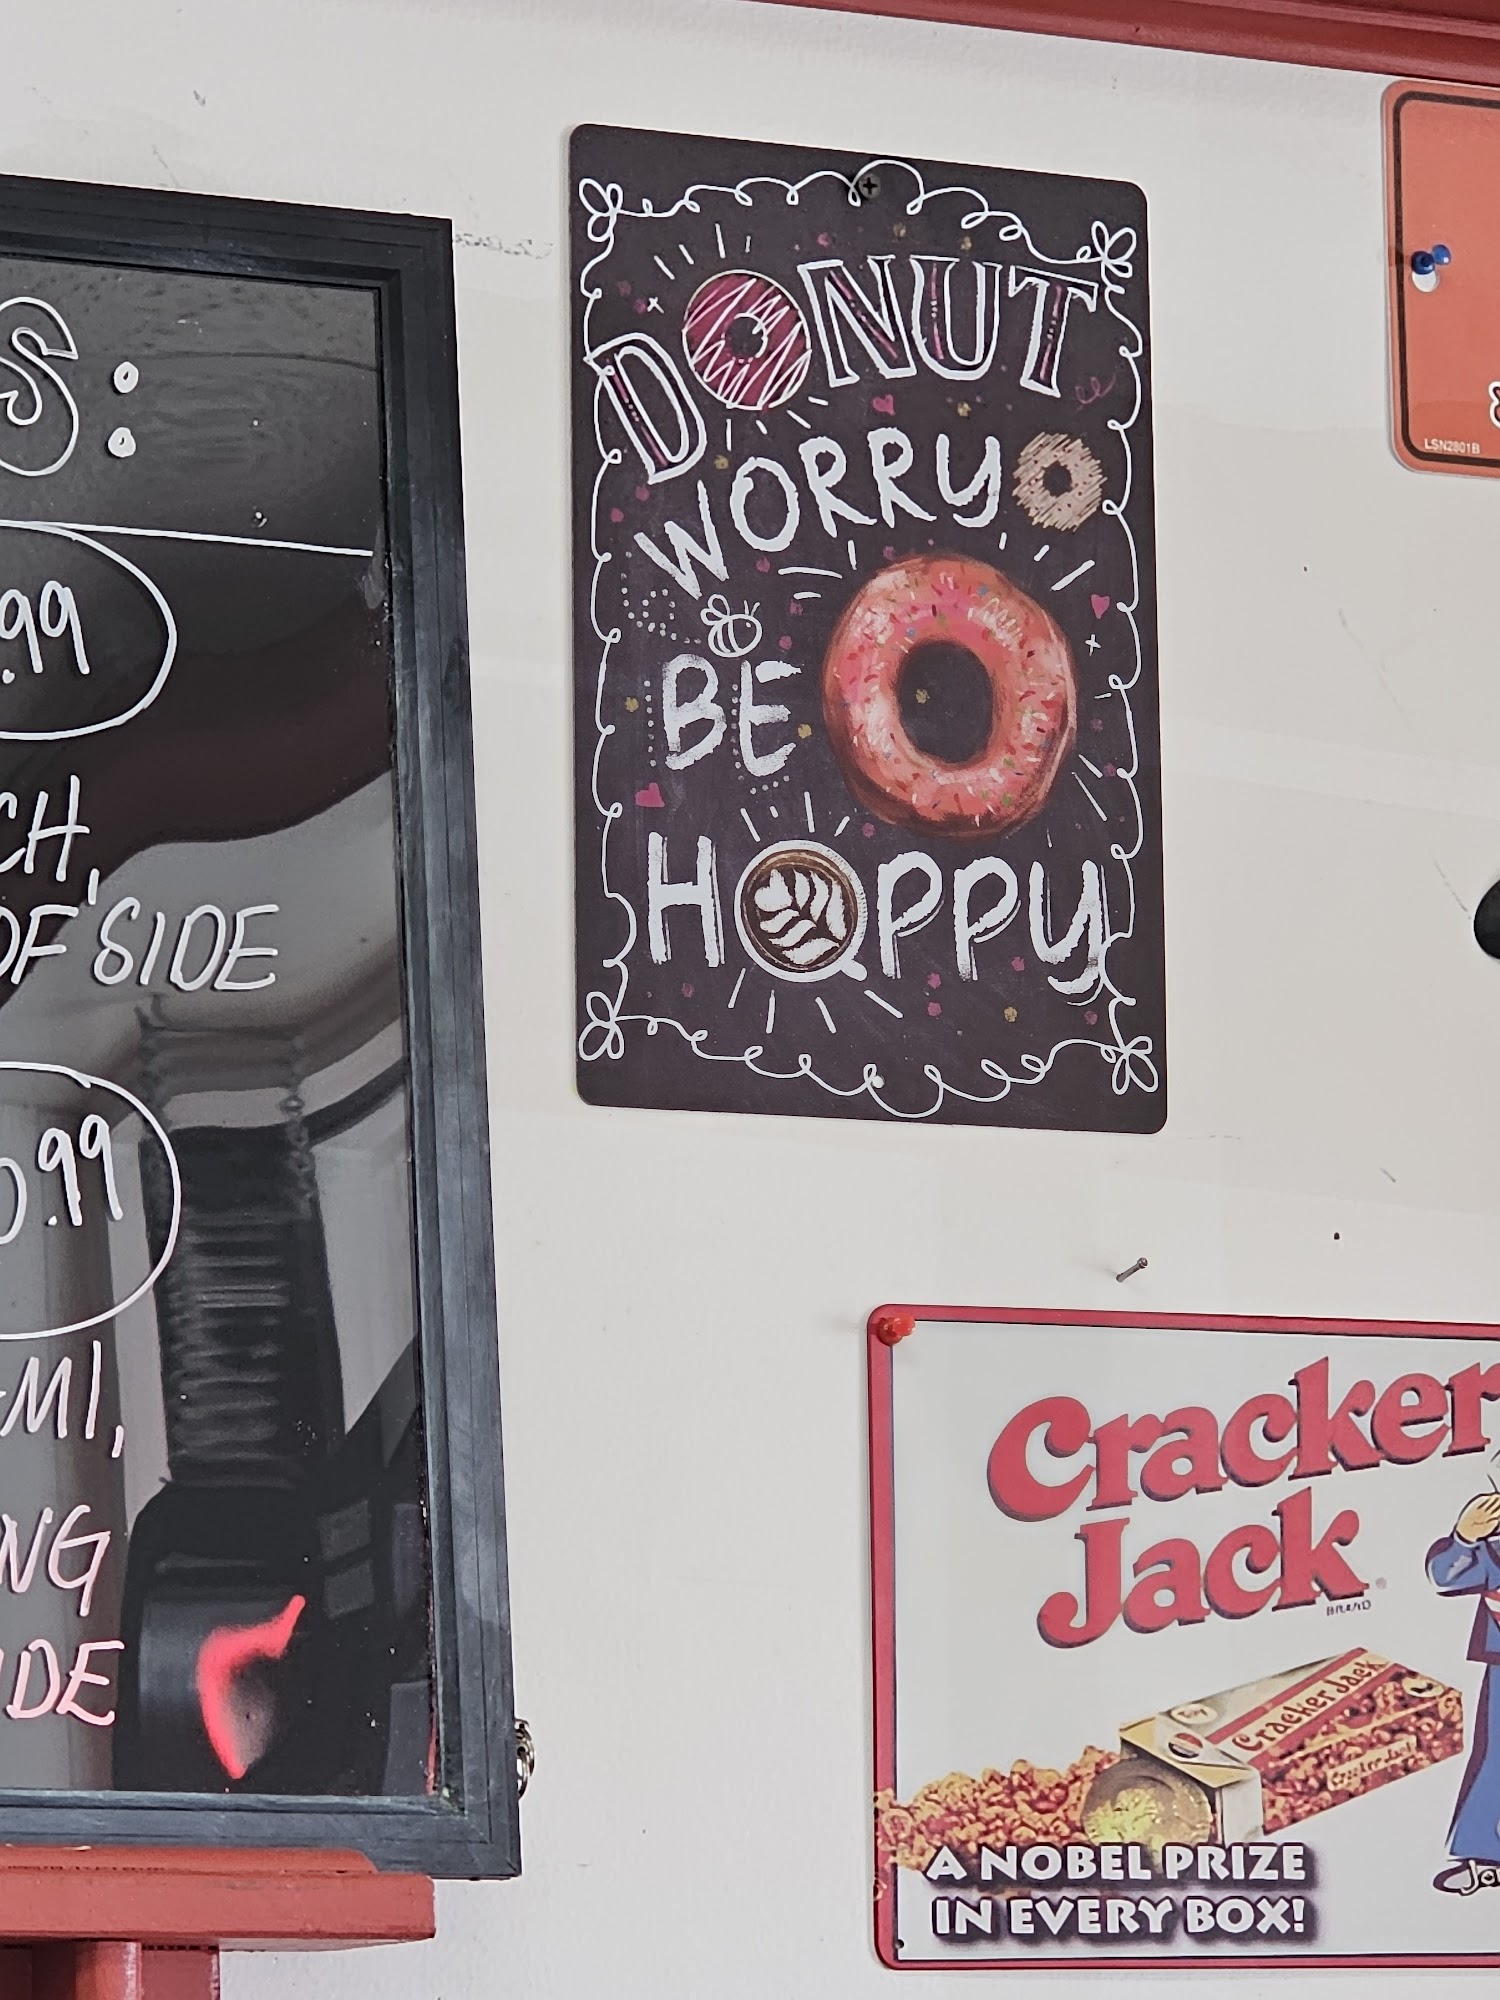 S:
.99
CH,
OF SIDE
0.99
MI,
NG
IDE
DONUT
WORRY
BE
HAPPY
LSN2801B
Cracker
Jack
BRAND
Cracker Jack
Cracker Jack
A NOBEL PRIZE
IN EVERY BOX!